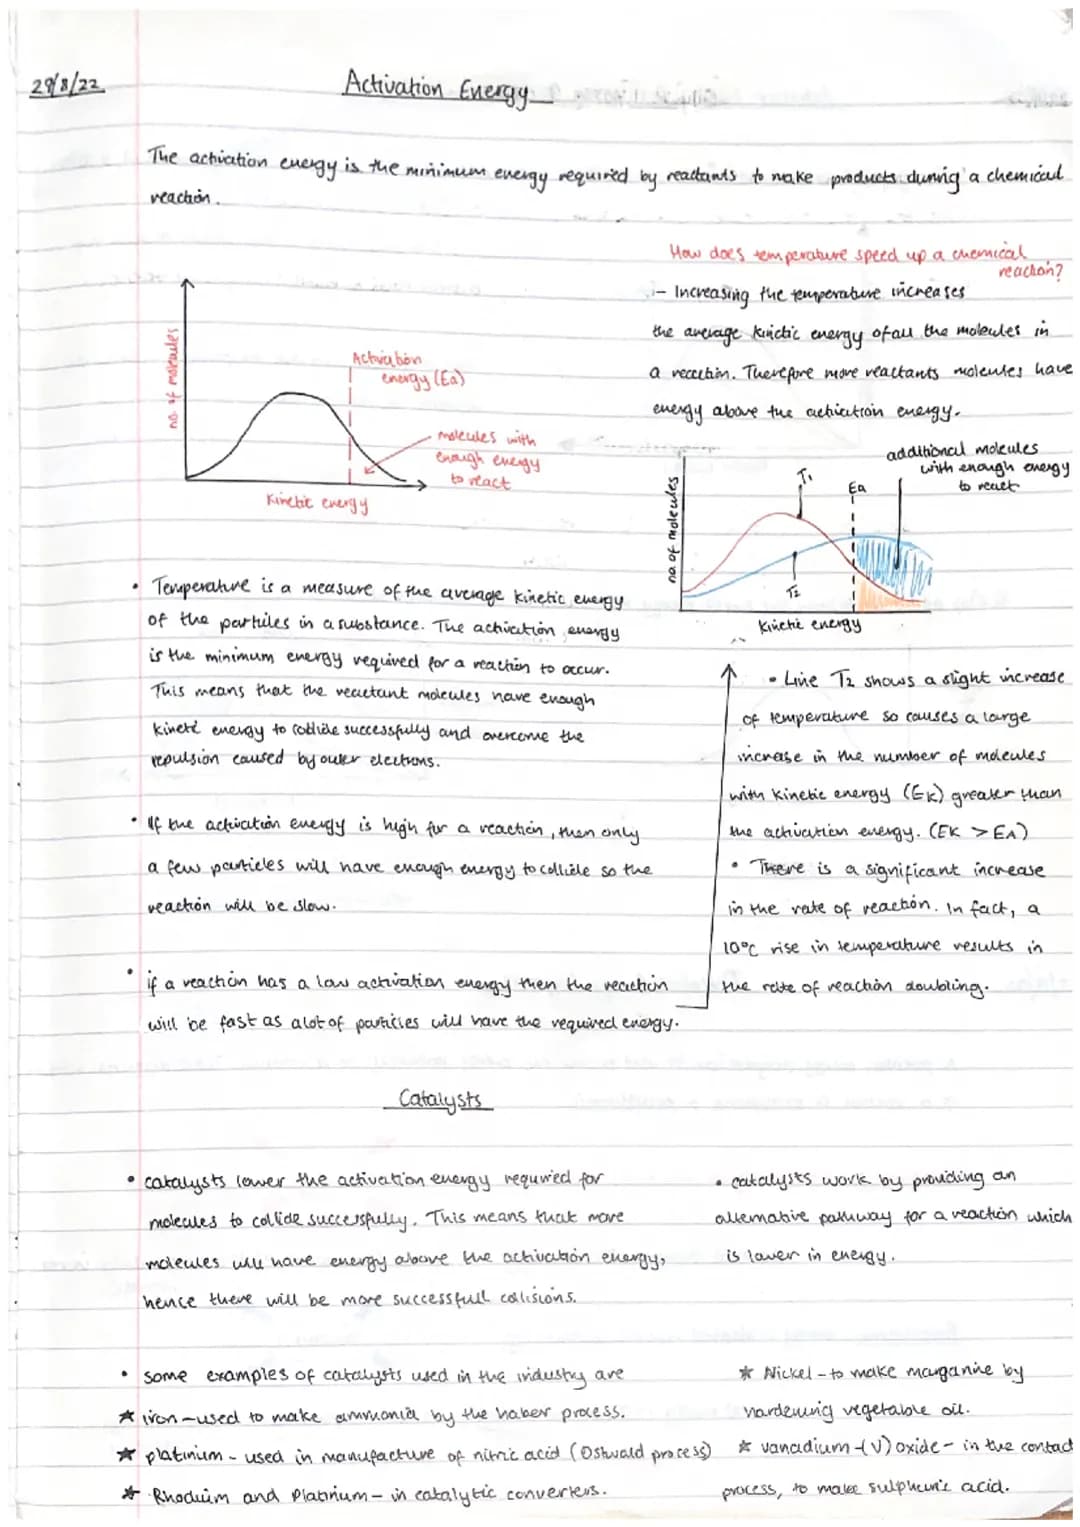 29/8/22
Activation Energy
The activation energy is the minimum energy required by reactants to make products during a chemical
reaction.
no. of molecules
Activation
energy (Ea)
molecules with
enough energy
to react
Kinetic energy
How does temperature speed up a chemical
reaction?
- Increasing the temperature increases
the average kinetic energy of all the molecules in
a reaction. Therefore more reactants molecules have
energy above the activation energy.
additional molecules
with enough energy
to react
no. of molecules
T1
Ea
T2
Kinetic energy
• Temperature is a measure of the average kinetic energy
of the particles in a substance. The activation energy
is the minimum energy required for a reaction to occur.
This means that the reactant molecules have enough
kinetic energy to collide successfully and overcome the
repulsion caused by outer electrons.
• If the activation energy is high for a reaction, then only
a few particles will have enough energy to collide so the
reaction will be slow.
• if a reaction has a low activation energy then the reaction
will be fast as a lot of particles will have the required energy.
• Line T2 shows a slight increase
of temperature so causes a large
increase in the number of molecules
with kinetic energy (EK) greater than
the activation energy. (EK > EA)
• There is a significant increase
in the rate of reaction. In fact, a
10°C rise in temperature results in
the rate of reaction doubling.
Catalysts
• catalysts lower the activation energy required for
molecules to collide successfully. This means that more
molecules will have energy above the activation energy,
hence there will be more successfull collisions.
• catalysts work by providing an
alternative pathway for a reaction which
is lower in energy.
• some examples of catalysts used in the industry are
★ iron - used to make ammonia by the haber process.
★ platinium - used in manufacture of nitric acid (Ostwald process)
★ Rhodium and Platinium - in catalytic converters.
★ Nickel - to make margarine by
hardening vegetable oil.
★ vanadium-(V) oxide - in the contact
process, to make sulphuric acid.